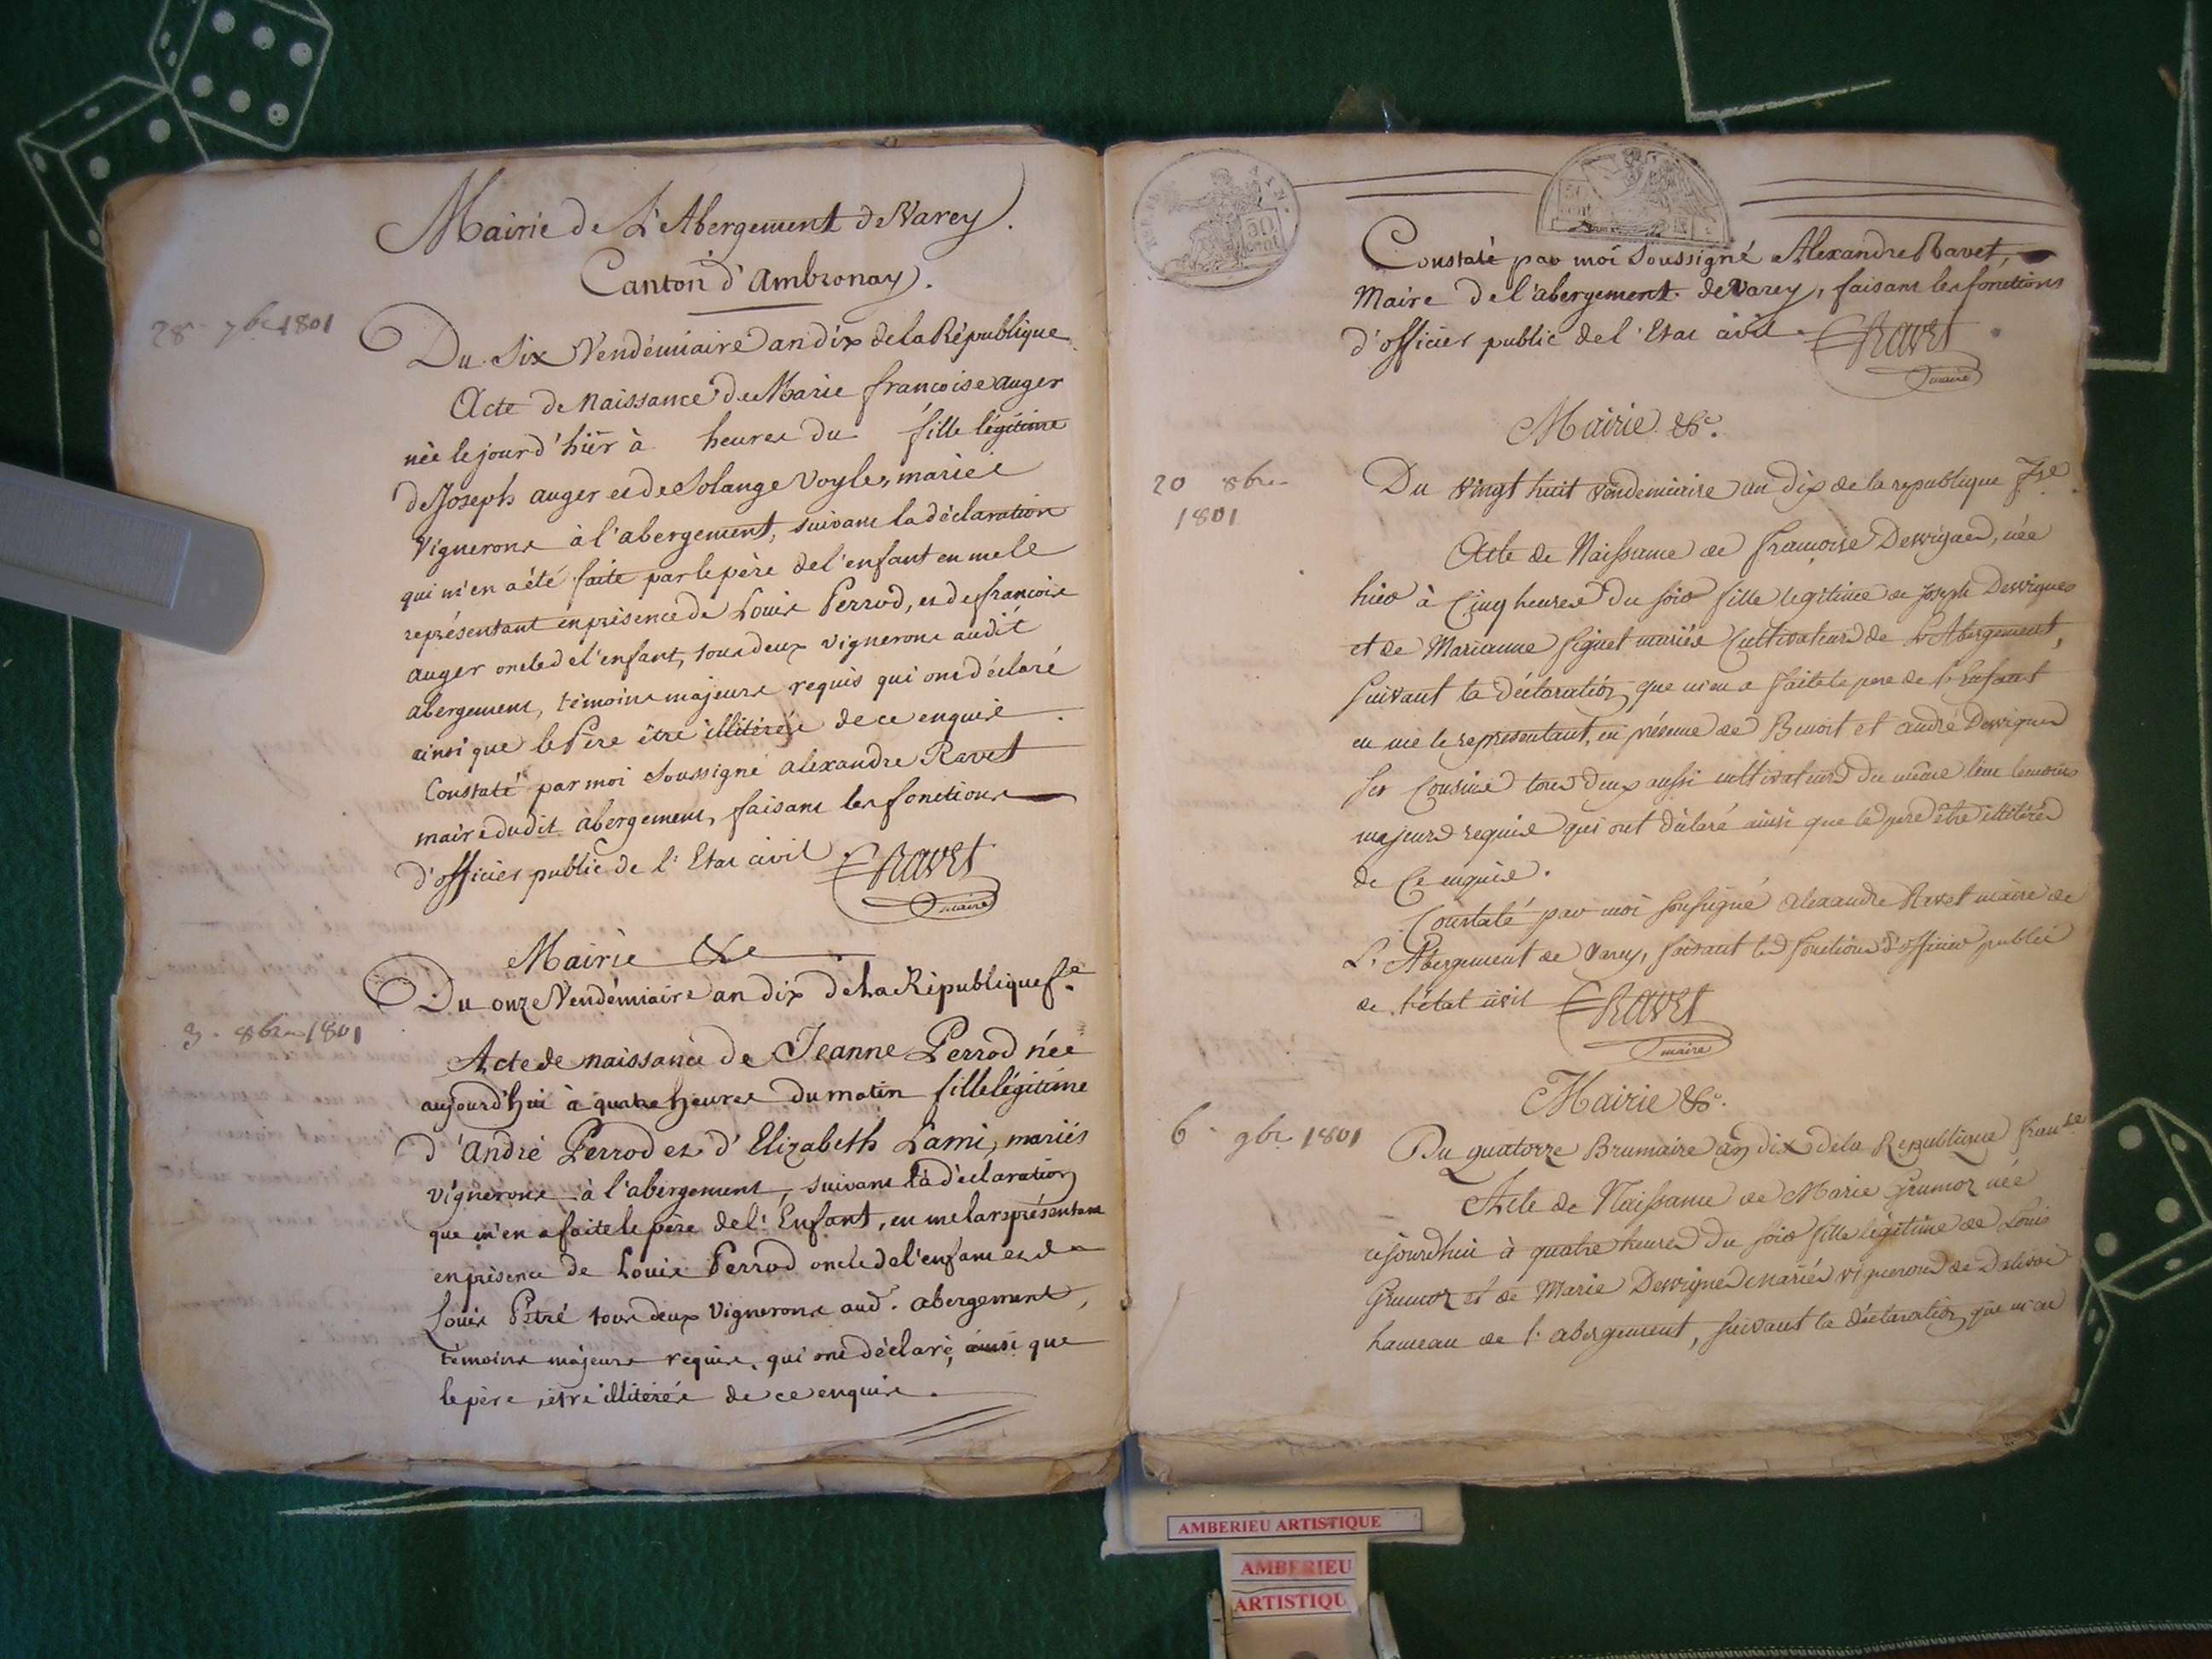 Mairie de L'Abergement de Varey.
Canton d'Ambronay.
28 7bre 1801
Du Six Vendémiaire an dix de la République
Acte de Naissance de Marie françoise auger
née le jour d'hier à heures du fille légitime
de Joseph auger et de Solange Voyle, mariés
Vignerons à l'abergement, suivant la déclaration
qui m'en a été faite par le père de l'enfant en me le
représentant en présence de Louis Perrod, et de françois
auger oncle de l'enfant, tous deux vignerons audit
abergement, témoins majeurs requis qui ont déclaré
ainsi que le Père être illitérés de ce enquis.
Constaté par moi Soussigné alexandre Ravet
maire dudit abergement, faisant les fonctions
d'officier public de l'Etat civil. Ravet
maire
Mairie &c
Du onze Vendémiaire an dix de La République fse
3 8bre 1801
Acte de naissance de Jeanne Perrod née
aujourd'hui à quatre heures du matin fille légitime
d'André Perrod et d'Elizabeth Lami, mariés
vignerons à l'abergement, suivant la déclaration
que m'en a faite le père de l'Enfant, en me la représentant
en présence de Louis Perrod oncle de l'enfant et de
Louis Petré tous deux Vignerons aud. abergement,
témoins majeurs requis, qui ont déclaré, ainsi que
le père, être illitérés de ce enquis.
50
cent
Constaté par moi Soussigné Alexandre Ravet,
Maire de l'abergement de Varey, faisant les fonctions
d'officier public de l'Etat civil. Ravet
maire
Mairie &c.
20 8bre
1801
Du vingt huit vendemiaire an dix de la republique fse.
Acte de Naissance de françoise Dewignes, née
hier à Cinq heures du soir fille legitime de Joseph Dewignes
et de Marianne Siguet mariés Cultivateurs de L'Abergement,
suivant la déclaration que m'en a faite le pere de l'Enfant
en me le representant, en présence de Benoit et andré Dewignes
ses Cousins tous deux aussi cultivateurs du même lieu temoins
majeurs requis qui ont déclaré ainsi que le père être illitérés
de Ce enquis.
Constaté par moi soussigné alexandre Ravet maire de
L'Abergement de Varey, faisant les fonctions d'officier public
de l'état civil Ravet
maire
Mairie &c.
6 9bre 1801
Du quatorze Brumaire an dix de la Republique franse
Acte de Naissance de Marie Grumoz née
cejourdhui à quatre heures du soir fille légitime de Louis
Grumoz et de Marie Dewigne mariés vignerons de Dalivoi
hameau de l'abergement, suivant la déclaration que m'en
AMBERIEU ARTISTIQUE
AMBERIEU
ARTISTIQU